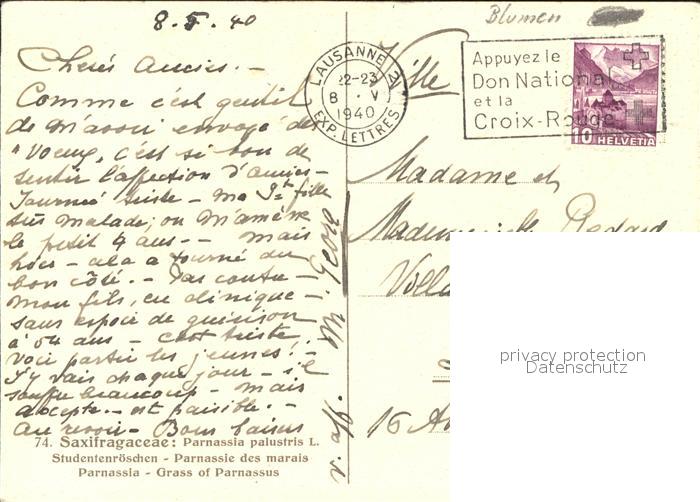 8.5.40
Blumen
Chères Amies. –
Comme c'est gentil
de m'avoir envoyé des
"Voeux, c'est si bon de
sentir l'affection d'amies –
Journée triste – ma fille
très malade, on m'amène
le petit 4 ans – – mais
cela a tourné du
bon côté. – Par contre –
mon fils, en clinique –
sans espoir de guérison
à 54 ans – c'est triste,
voir partir les jeunes! –
J'y vais chaque jour – il
souffre beaucoup – mais
accepte – est paisible. –
Au revoir – Bons baisers
v. aff. M.
LAUSANNE 2
22-23
8 · V
1940
EXP. LETTRES
Appuyez le
Don National
et la
Croix-Rouge
10 HELVETIA
Ville
Madame et
Mademoiselle
16 A
privacy protection
Datenschutz
74. Saxifragaceae: Parnassia palustris L.
Studentenröschen - Parnassie des marais
Parnassia - Grass of Parnassus